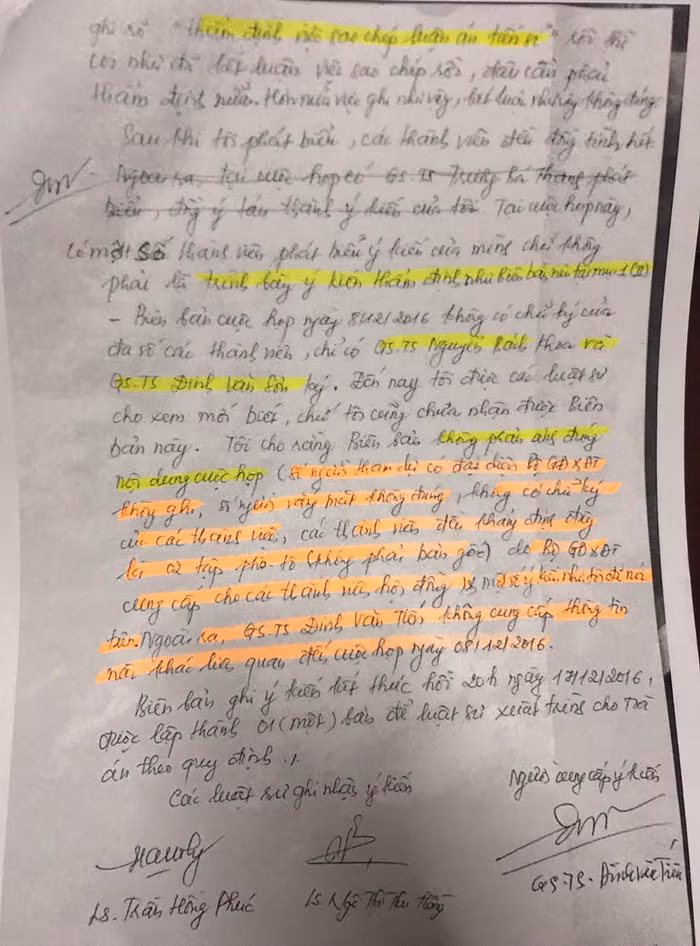 ghi rõ "thẩm định việc sao chép luận án tiến sĩ" rồi thì
coi như đã kết luận việc sao chép rồi, đâu cần phải
thẩm định nữa. Hơn nữa việc ghi như vậy, kết luận như vậy không đúng
Sau khi tôi phát biểu, các thành viên đều đồng tình hết.
Ngoài ra, tại cuộc họp có GS.TS Trương Bá Thanh phát
biểu, đồng ý tán thành ý kiến của tôi. Tại cuộc họp này,
có một số thành viên phát biểu ý kiến của mình chứ không
phải là trình bày ý kiến thẩm định như Biên bản nêu tại mục 1 (II)
- Biên bản cuộc họp ngày 8/12/2016 không có chữ ký của
đa số các thành viên, chỉ có GS.TS Nguyễn Bách Khoa và
GS.TS Đinh Văn Sơn ký. Đến nay tôi được các luật sư
cho xem mới biết, chứ tôi cũng chưa nhận được Biên
bản này. Tôi cho rằng Biên bản không phản ánh đúng
nội dung cuộc họp (số người tham dự có đại diện Bộ GD&ĐT
không ghi, số người vắng mặt không đúng, không có chữ ký
của các thành viên, các thành viên đều khẳng định đúng
là 02 tập phô-tô (không phải bản gốc) do Bộ GD&ĐT
cung cấp cho các thành viên hội đồng) & một số ý kiến như tôi đã nói
trên. Ngoài ra, GS.TS Đinh Văn Tiến không cung cấp thông tin
nào khác liên quan đến cuộc họp ngày 08/12/2016.
Biên bản ghi ý kiến kết thúc hồi 20h ngày 17/12/2016,
được lập thành 01 (một) bản để luật sư xuất trình cho Toà
án theo quy định ./.
Các luật sư ghi nhận ý kiến
Người cung cấp ý kiến
Ls. Trần Hồng Phúc
Ls. Ngô Thị Thu Hằng
GS.TS. Đinh Văn Tiến